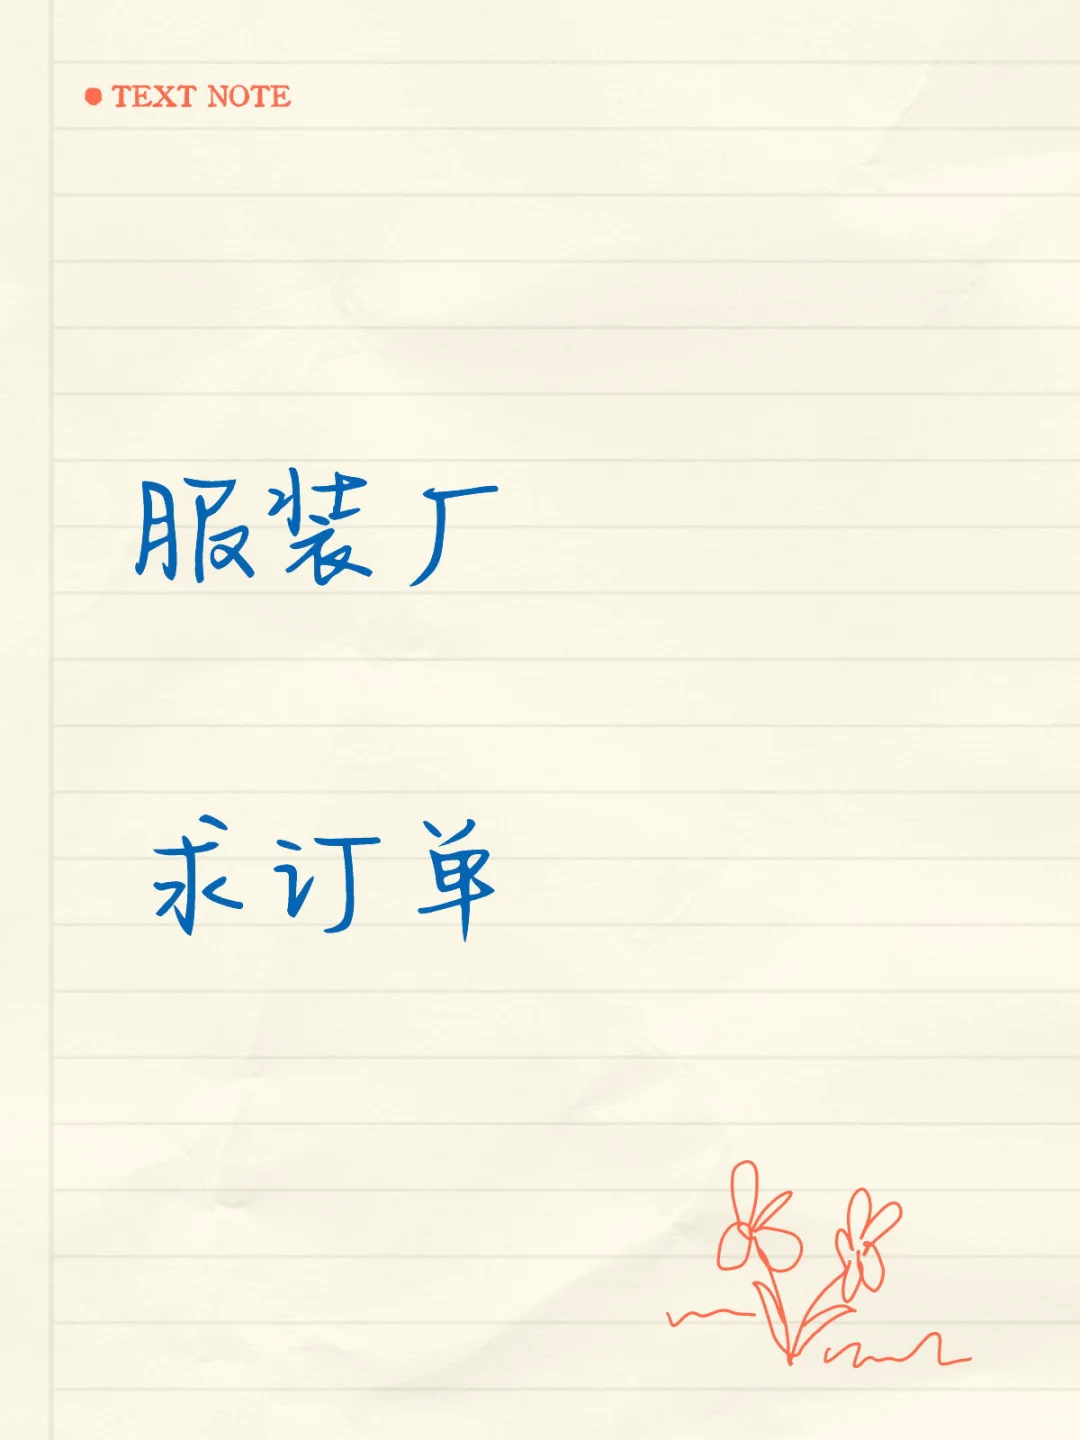 TEXT NOTE
服装厂
求订单